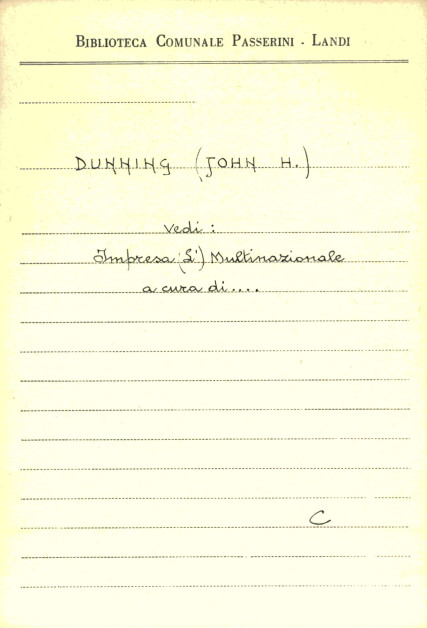 BIBLIOTECA COMUNALE PASSERINI - LANDI
DUNNING (JOHN H.)
vedi:
Impresa (L') Multinazionale
a cura di....
C